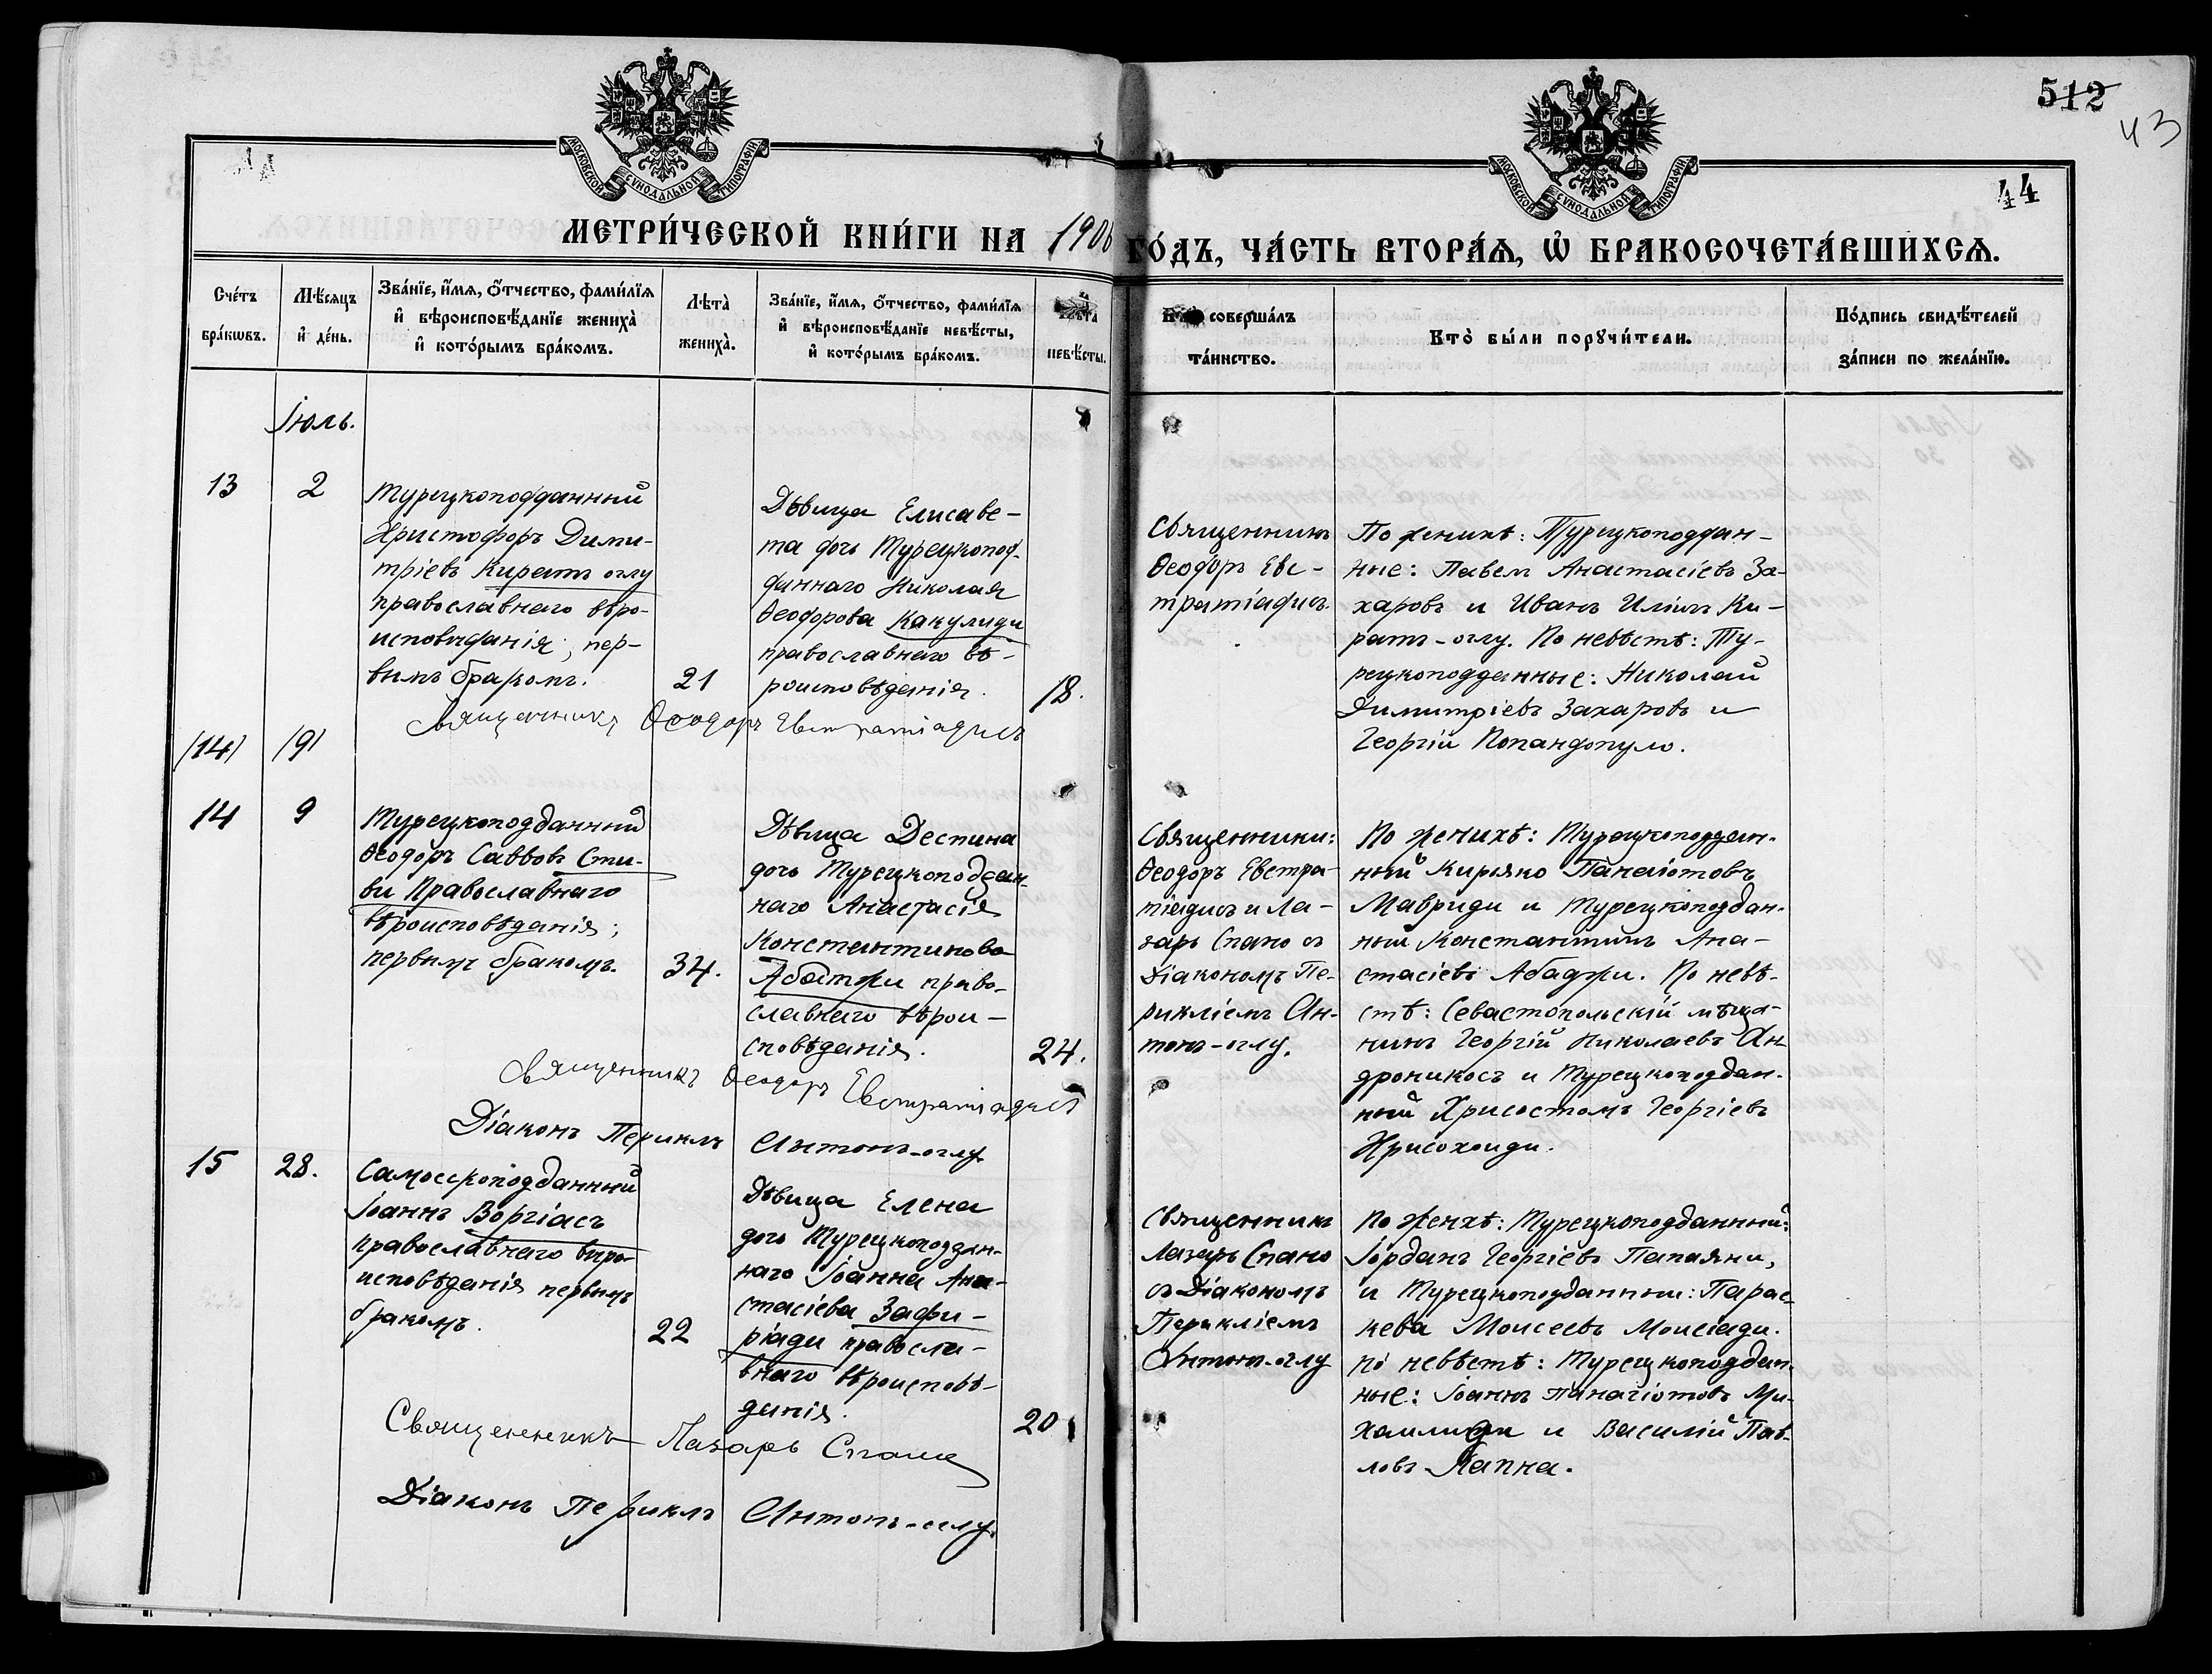 512
43
44
МОСКОВСКОЙ СУНОДАЛЬНОЙ ТИПОГРАФІИ
МОСКОВСКОЙ СУНОДАЛЬНОЙ ТИПОГРАФІИ
МЕТРИ́ЧЕСКОЙ КНИ́ГИ НА 1906 ГО́ДЪ, ЧА́СТЬ ВТОРА́Ѧ, Ѡ҆ БРАКОСОЧЕТА́ВШИХСѦ.
Сче́тъ
бра́кѡвъ.
Мѣ́сѧцъ
и҆ де́нь.
Зва́нїе, и҆́мѧ, ѻ҆́тчество, фами́лїѧ
и҆ вѣроисповѣ́данїе жениха̀
и҆ кото́рымъ бра́комъ.
Лѣта̀
жениха̀.
Зва́нїе, и҆́мѧ, ѻ҆́тчество, фами́лїѧ
и҆ вѣроисповѣ́данїе невѣ́сты,
и҆ кото́рымъ бра́комъ.
Лѣта̀
невѣ́сты.
Кто̀ соверша́лъ
та́инство.
Кто̀ бы́ли порꙋчи́тели.
По́дпись свидѣ́телей
за́писи по жела́нїю.
Іюль.
13
2
Турецкоподданный
Христофоръ Дими-
тріевъ Киратъ оглу
православнаго вѣро-
исповѣданія; пер-
вымъ бракомъ.
21
Дѣвица Елисаве-
та дочь Турецкопод-
даннаго Николая
Ѳеодорова Какулиди
православнаго вѣ-
роисповѣданія.
18.
Священникъ
Ѳеодоръ Евс-
тратіадисъ.
По женихѣ: Турецкоподдан-
ные: Павелъ Анастасіевъ За-
харовъ и Иванъ Иліинъ Ки-
ратъ-оглу. По невѣстѣ: Ту-
рецкоподданные: Николай
Димитріевъ Захаровъ и
Георгій Попандопуло.
Священникъ Ѳеодоръ Евстратіадисъ
(14)
(9)
14
9
Турецкоподданный
Ѳеодоръ Саввовъ Сти-
ви Православнаго
вѣроисповѣданія;
первымъ бракомъ.
34.
Дѣвица Деспина
дочь Турецкоподдан-
наго Анастасія
Константинова
Абатжи право-
славнаго вѣрои-
сповѣданія.
24.
Священники:
Ѳеодоръ Евстра-
тіадисъ и Ла-
зарь Спано съ
Діакономъ Пе-
рикліемъ Ан-
тонъ-оглу.
По женихѣ: Турецкоподдан-
ный Кирьяко Панаіотовъ
Мавриди и Турецкоподдан-
ный Константинъ Ана-
стасіевъ Абаджи. По невѣ-
стѣ: Севастопольскій мѣща-
нинъ Георгій Николаевъ Ан-
дроникосъ и Турецкоподдан-
ный Хрисостомъ Георгіевъ
Хрисохоиди.
Священникъ Ѳеодоръ Евстратіадисъ
Діаконъ Периклъ Антонъ-оглу.
15
28.
Самосскоподданный
Іоаннъ Воргіасъ
православнаго вѣро-
исповѣданія первымъ
бракомъ.
22
Дѣвица Елена
дочь Турецкоподдан-
наго Іоанна Ана-
стасіева Зафи-
ріади правосла-
внаго вѣроисповѣ-
данія.
20
Священникъ
Лазарь Спано
съ Діакономъ
Перикліемъ
Антонъ-оглу
По женхѣ: Турецкоподданный:
Іорданъ Георгіевъ Папаяни,
и Турецкоподданный: Парас-
кева Моисеевъ Моисіади.
по невѣстѣ: Турецкоподдан-
ные: Іоаннъ Панагіотовъ Ми-
хаилиди и Василій Пав-
ловъ Папна.
Священникъ Лазарь Спано
Діаконъ Периклъ Антонъ-оглу.